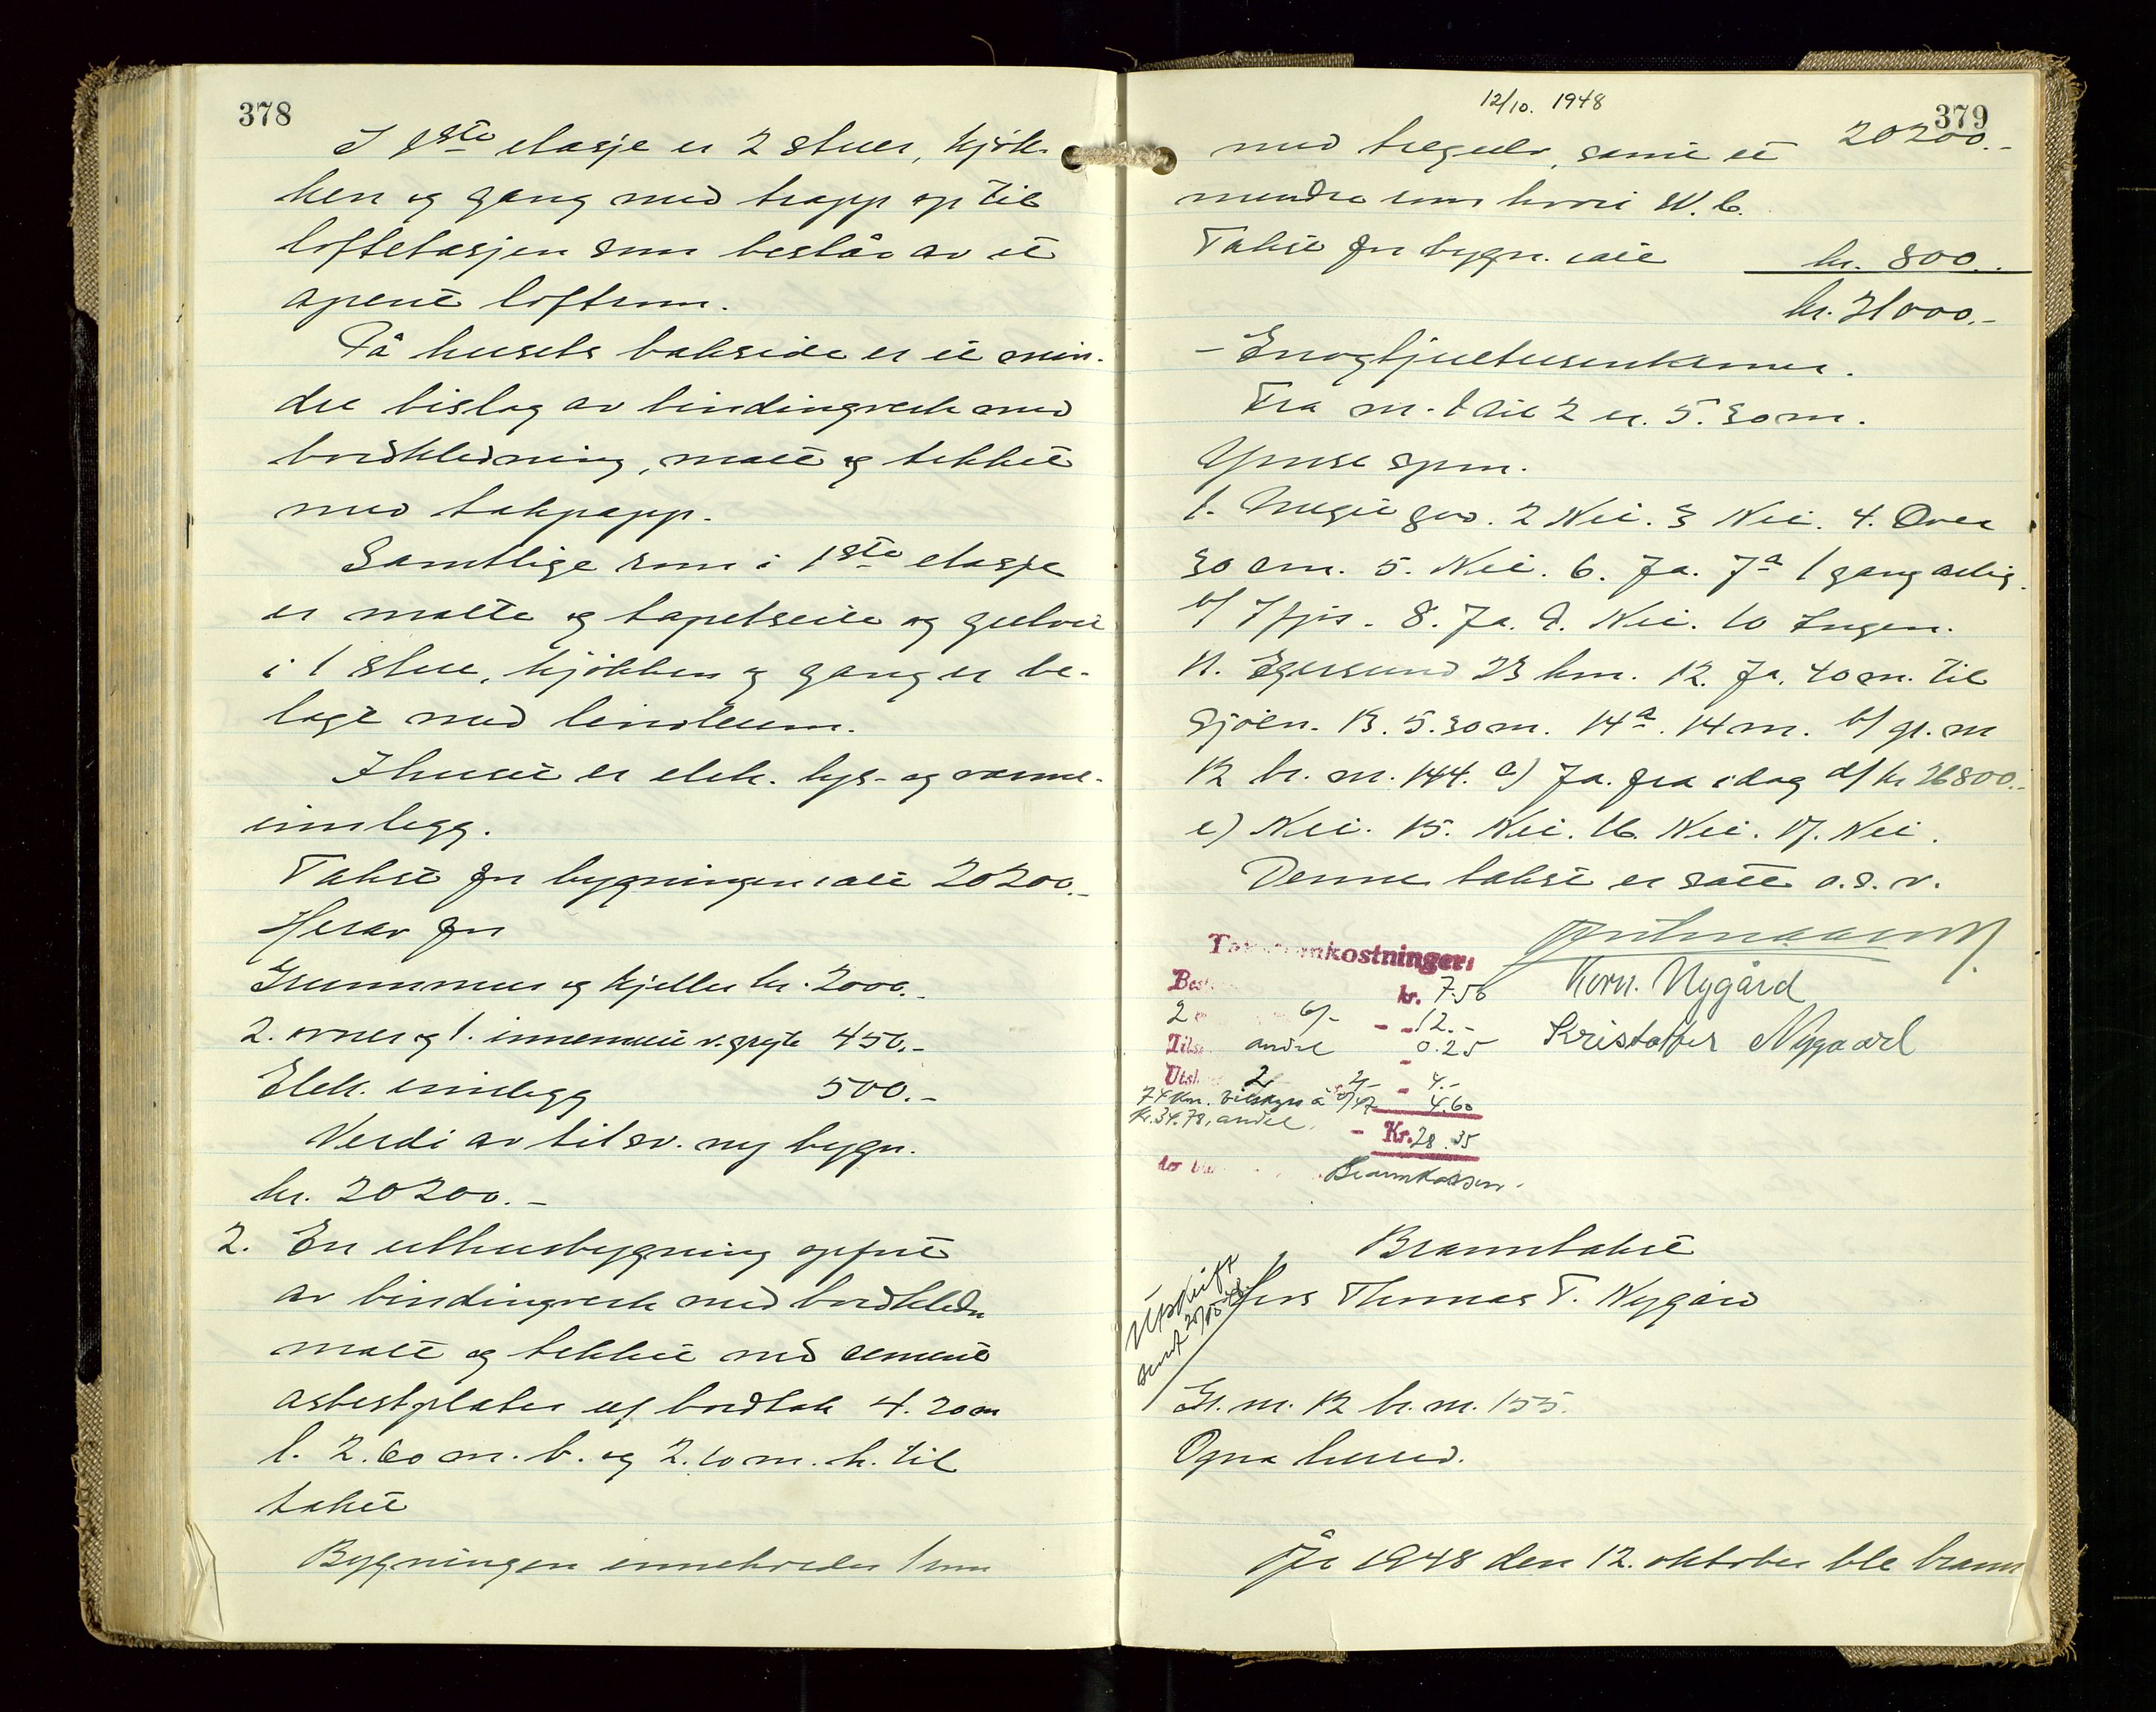 378
I 1ste etasje er 2 stuer, kjök-
ken og gang med trapp op til
loftetasjen som består av et
åpent loftrom.
På husets bakside er et min-
dre bislag av bindingverk med
bordkledning, malt og tekket
med takpapp.
Samtlige rom i 1ste etasje
er malte og tapetserte og gulvet
i 1 stue, kjökken og gang er be-
lagt med linoleum.
I huset er elek. lys- og varme-
innlegg.
Takst for bygningen ialt 20200.-
Herav for
Grunnmur og kjeller kr. 2000.-
2. ovner og 1. innemuret v. gryte 450.-
Elek. innlegg 500.-
Verdi av tilsv. ny bygn.
kr. 20200.-
2. En uthusbygning opført
av bindingverk med bordkledn
malt og tekket med cement
asbestplater på bordtak 4.20 m
l. 2.60 m. b. og 2.10 m. h. til
taket
Bygningen inneholder 1 rom
12/10. 1948
379
med tregulv, samt et 20200.-
mindre rom hvori W.C.
Takst for bygn. ialt kr. 800.-
kr. 21000.-
- Enogtjuetusenkroner.
Fra m. 1 til 2 er 5.30 m.
Ymse spm.
1. Meget god. 2 Nei. 3 Nei. 4. Over
30 cm. 5. Nei. 6. Ja. 7a 1 gang årlig.
b/ 1 pis. 8. Ja. 9. Nei. 10 Ingen.
11. Egersund 23 km. 12. Ja. 40 m. til
sjøen. 13. 5.30 m. 14a. 14 m. b/ gr. m
12 br. m. 144. c) Ja. fra idag d/ kr 26800.-
e) Nei. 15. Nei. 16. Nei. 17. Nei.
Denne takst er satt o.s.v.
omkostninger:
kr. 7.50 Korn. Nygård
2 6/- - 12.-
andel 0.25 Kristoffer Nygaard
2 2/- - 4.-
74 km. bilskyss à 0/47 4.60
kr. 34.78, andel
- Kr. 28.35
Brannkassen.
Branntakst
Utskrift
sendt
hos Thomas T. Nygård
Gr. m. 12 br. m. 155.
Ogna herred.
År 1948 den 12. oktober ble brann